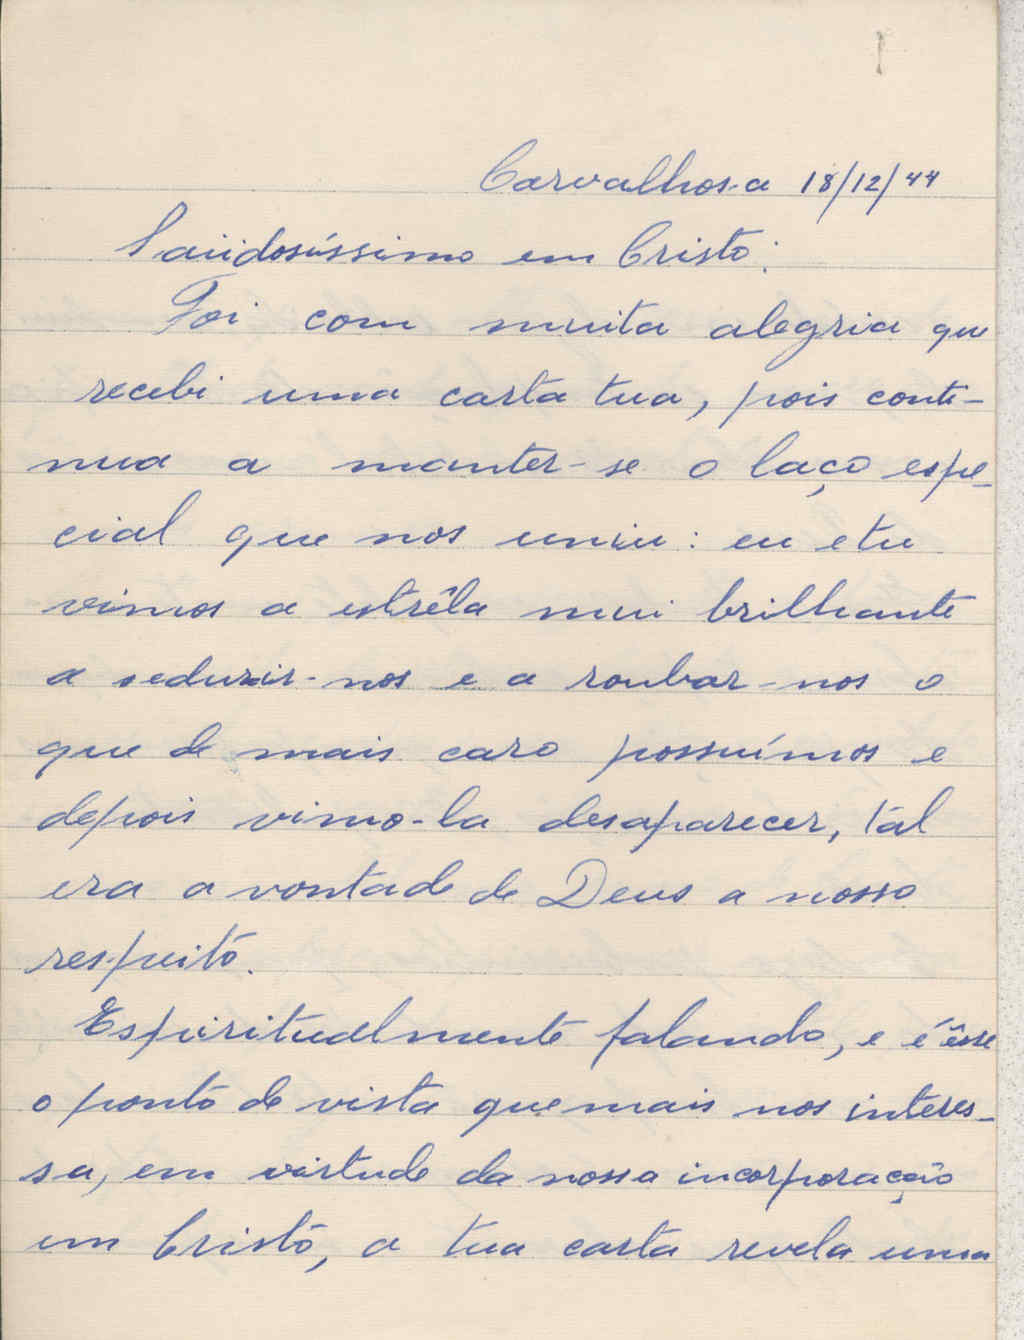 Carvalhosa 18/12/44
Saüdosíssimo em Cristo:
Foi com muita alegria que
recebi uma carta tua, pois conti-
nua a manter-se o laço espe-
cial que nos uniu: eu e tu
vimos a estrêla mui brilhante
a seduzir-nos e a roubar-nos o
que de mais caro possuímos e
depois vimo-la desaparecer, tal
era a vontade de Deus a nosso
respeito.
Espiritualmente falando, e é êsse
o ponto de vista que mais nos interes-
sa, em virtude da nossa incorporação
em Cristo, a tua carta revela uma